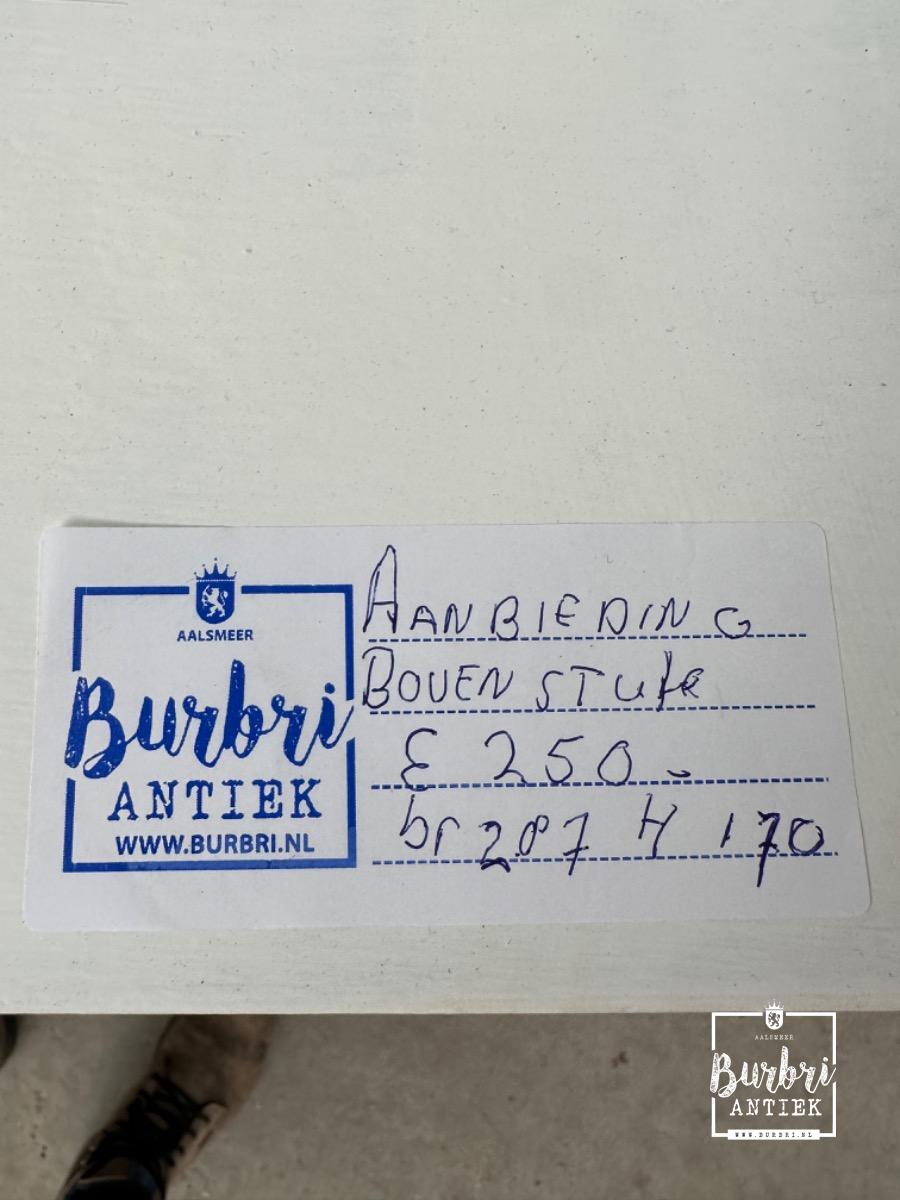 AALSMEER
Burbri
ANTIEK
WWW.BURBRI.NL
AANBIEDING
BOVENSTUK
€ 250.-
br 287 H 170
AALSMEER
Burbri
ANTIEK
WWW.BURBRI.NL